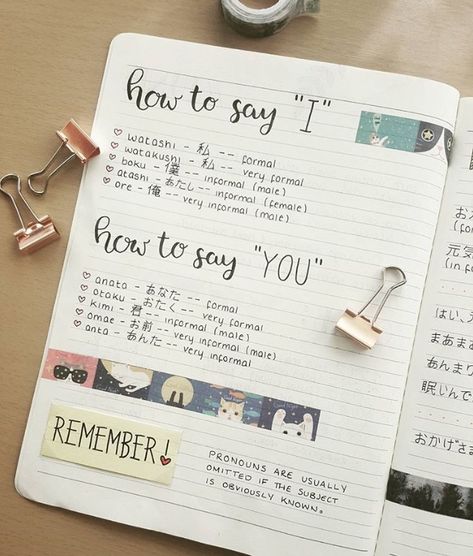 how to say "I"
watashi - 私 -- formal
watakushi - 私 -- very formal
boku - 僕 -- informal (male)
atashi - あたし -- informal (female)
ore - 俺 -- very informal (male)
how to say "YOU"
anata - あなた -- formal
otaku - おたく -- very formal
kimi - 君 -- informal (male)
omae - お前 -- very informal (male)
anta - あんた -- very informal
REMEMBER!
PRONOUNS ARE USUALLY
OMITTED IF THE SUBJECT
IS OBVIOUSLY KNOWN.
(for
元気
(in f
はい、元
まあまあ
あんまり
眠いんで
おかげさま